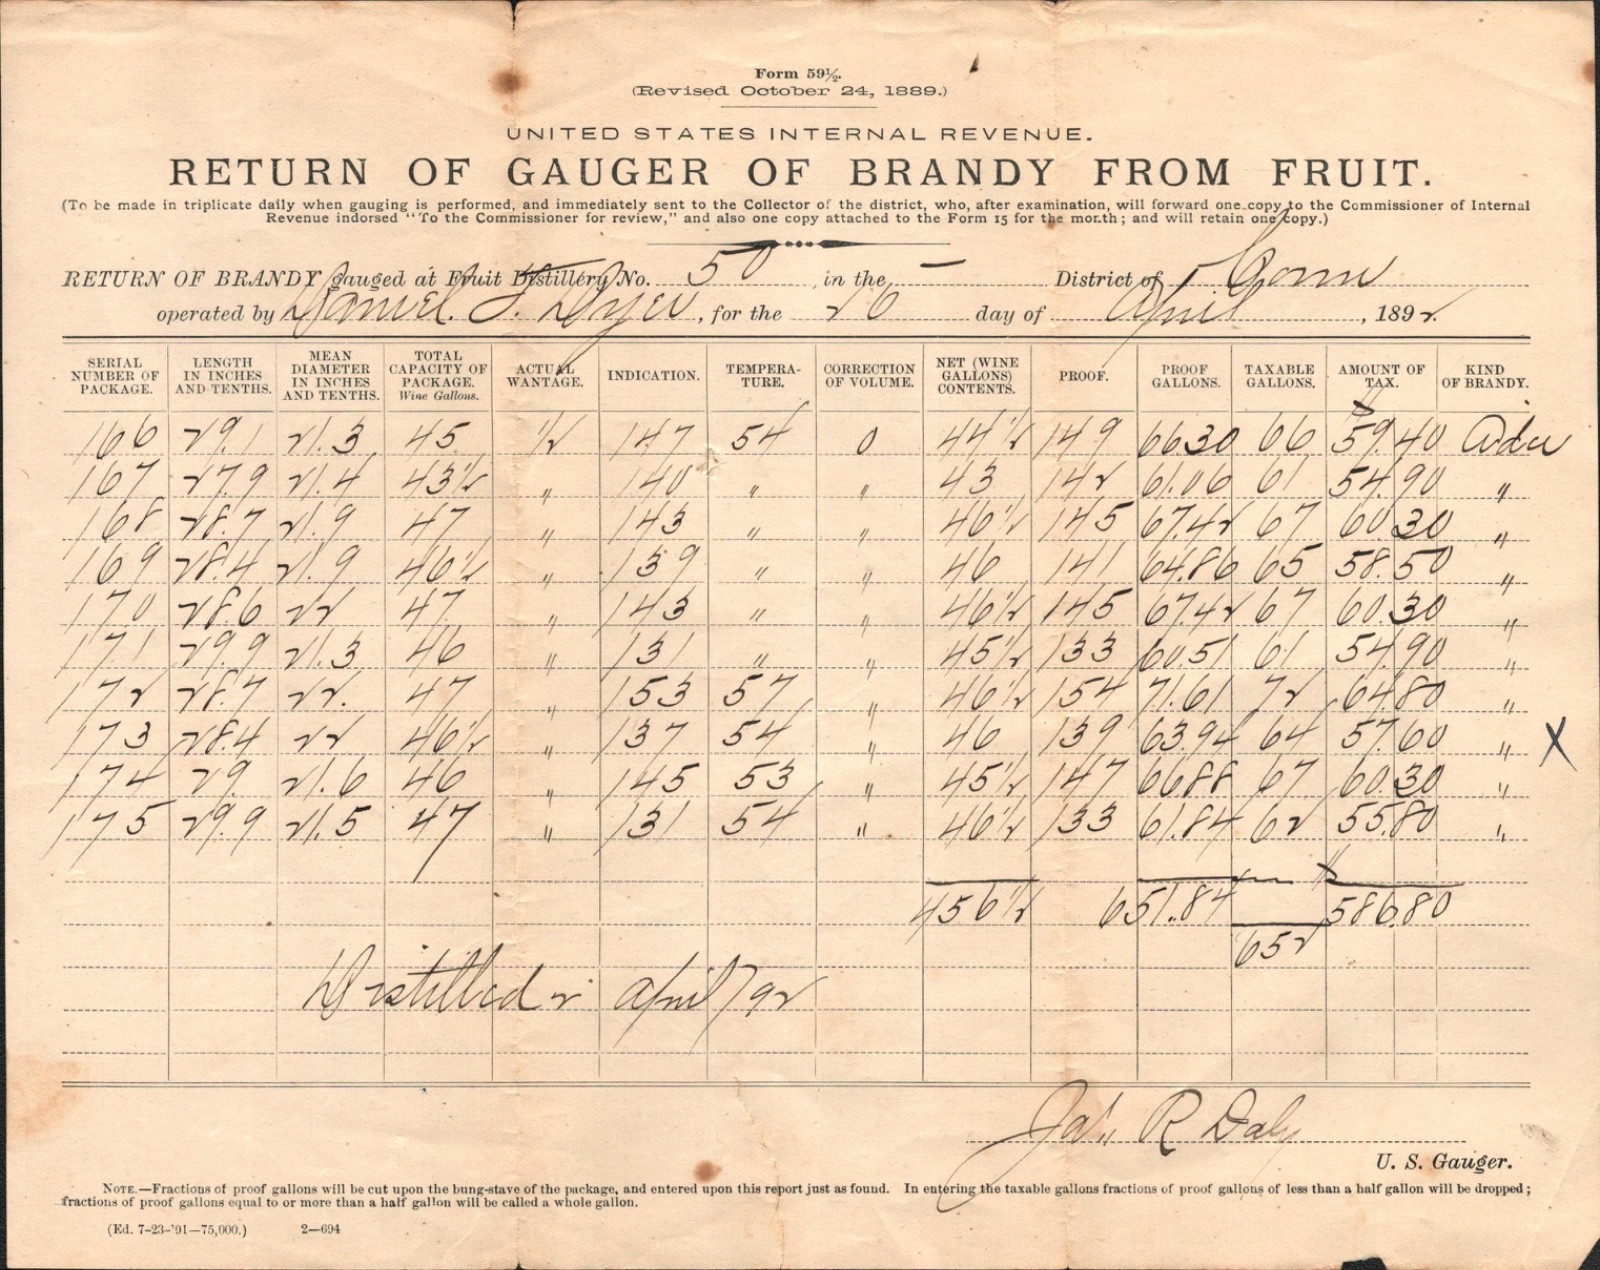 Form 59½.
(Revised October 24, 1889.)
UNITED STATES INTERNAL REVENUE.
RETURN OF GAUGER OF BRANDY FROM FRUIT.
(To be made in triplicate daily when gauging is performed, and immediately sent to the Collector of the district, who, after examination, will forward one copy to the Commissioner of Internal
Revenue indorsed "To the Commissioner for review," and also one copy attached to the Form 15 for the month; and will retain one copy.)
RETURN OF BRANDY gauged at Fruit Distillery No. 50 in the — District of Conn
operated by Daniel T. Dyer, for the 26 day of April, 1892.
SERIAL NUMBER OF PACKAGE. LENGTH IN INCHES AND TENTHS. MEAN DIAMETER IN INCHES AND TENTHS. TOTAL CAPACITY OF PACKAGE. Wine Gallons. ACTUAL WANTAGE. INDICATION. TEMPERA-TURE. CORRECTION OF VOLUME. NET (WINE GALLONS) CONTENTS. PROOF. PROOF GALLONS. TAXABLE GALLONS. AMOUNT OF TAX. KIND OF BRANDY.
166 29.1 21.3 45 ½ 147 54 0 44½ 149 66 30 66 $59.40
167 27.9 21.4 43½ " 140 " " 43 142 61.06 61 54.90 "
168 28.7 21.9 47 " 143 " " 46½ 145 67.42 67 60.30 "
169 28.4 21.9 46½ " 139 " " 46 141 64.86 65 58.50 "
170 28.6 22 47 " 143 " " 46½ 145 67.42 67 60.30 "
171 29.9 21.3 46 " 131 " " 45½ 133 60.51 61 54.90 "
172 28.7 22. 47 " 153 57 " 46½ 154 71.61 72 64.80 "
173 28.4 22 46½ " 137 54 " 46 139 63.94 64 57.60 " X
174 29. 21.6 46 " 145 53 " 45½ 147 66.88 67 60.30 "
175 29.9 21.5 47 " 131 54 " 46½ 133 61.84 62 55.80 "
456½ 651.84 $586.80
652
Distilled in April/92
Jas. R Daly
U. S. Gauger.
NOTE.—Fractions of proof gallons will be cut upon the bung-stave of the package, and entered upon this report just as found. In entering the taxable gallons fractions of proof gallons of less than a half gallon will be dropped;
fractions of proof gallons equal to or more than a half gallon will be called a whole gallon.
(Ed. 7-23-'91—75,000.) 2—694